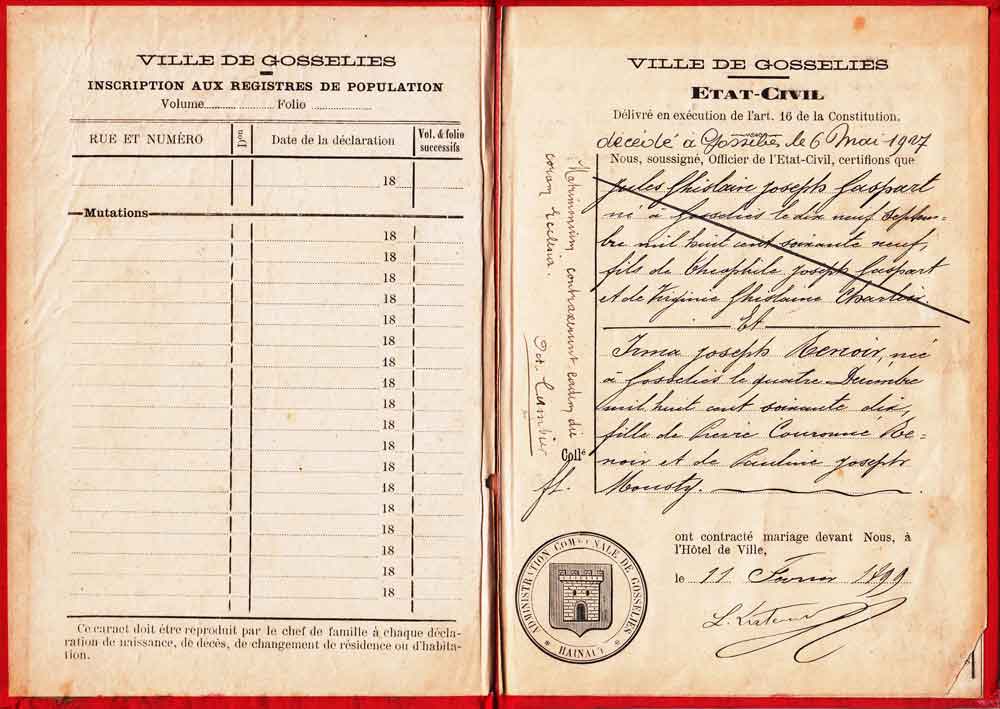 VILLE DE GOSSELIES
INSCRIPTION AUX REGISTRES DE POPULATION
Volume............ Folio ..................
RUE ET NUMÉRO
Don
Date de la déclaration
Vol. & folio
successifs
18
Mutations
18
18
18
18
18
18
18
18
18
18
18
18
18
18
18
18
18
18
Ce carnet doit être reproduit par le chef de famille à chaque décla-
ration de naissance, de décès, de changement de résidence ou d'habita-
tion.
VILLE DE GOSSELIES
ETAT-CIVIL
Délivré en exécution de l'art. 16 de la Constitution.
décédé à Gosselies le 6 Mai 1927
Nous, soussigné, Officier de l'Etat-Civil, certifions que
Jules Ghislain Joseph Gaspart
né à Gosselies le dix neuf Septem-
bre mil huit cent soixante neuf,
fils de Théophile Joseph Gaspart
et de Virginie Ghislaine Charlier.
Et
Irma Joseph Renoir, née
à Gosselies le quatre Décembre
mil huit cent soixante dix,
fille de Pierre Couronné Re-
noir et de Pauline Joseph
Mousty.
Matrimonium contraxerunt eadem die
coram Ecclesia.
Oct. Cambier
Collé
ff.
ont contracté mariage devant Nous, à
l'Hôtel de Ville,
le 11 Février 1899
ADMINISTRATION COMMUNALE DE GOSSELIES
HAINAUT